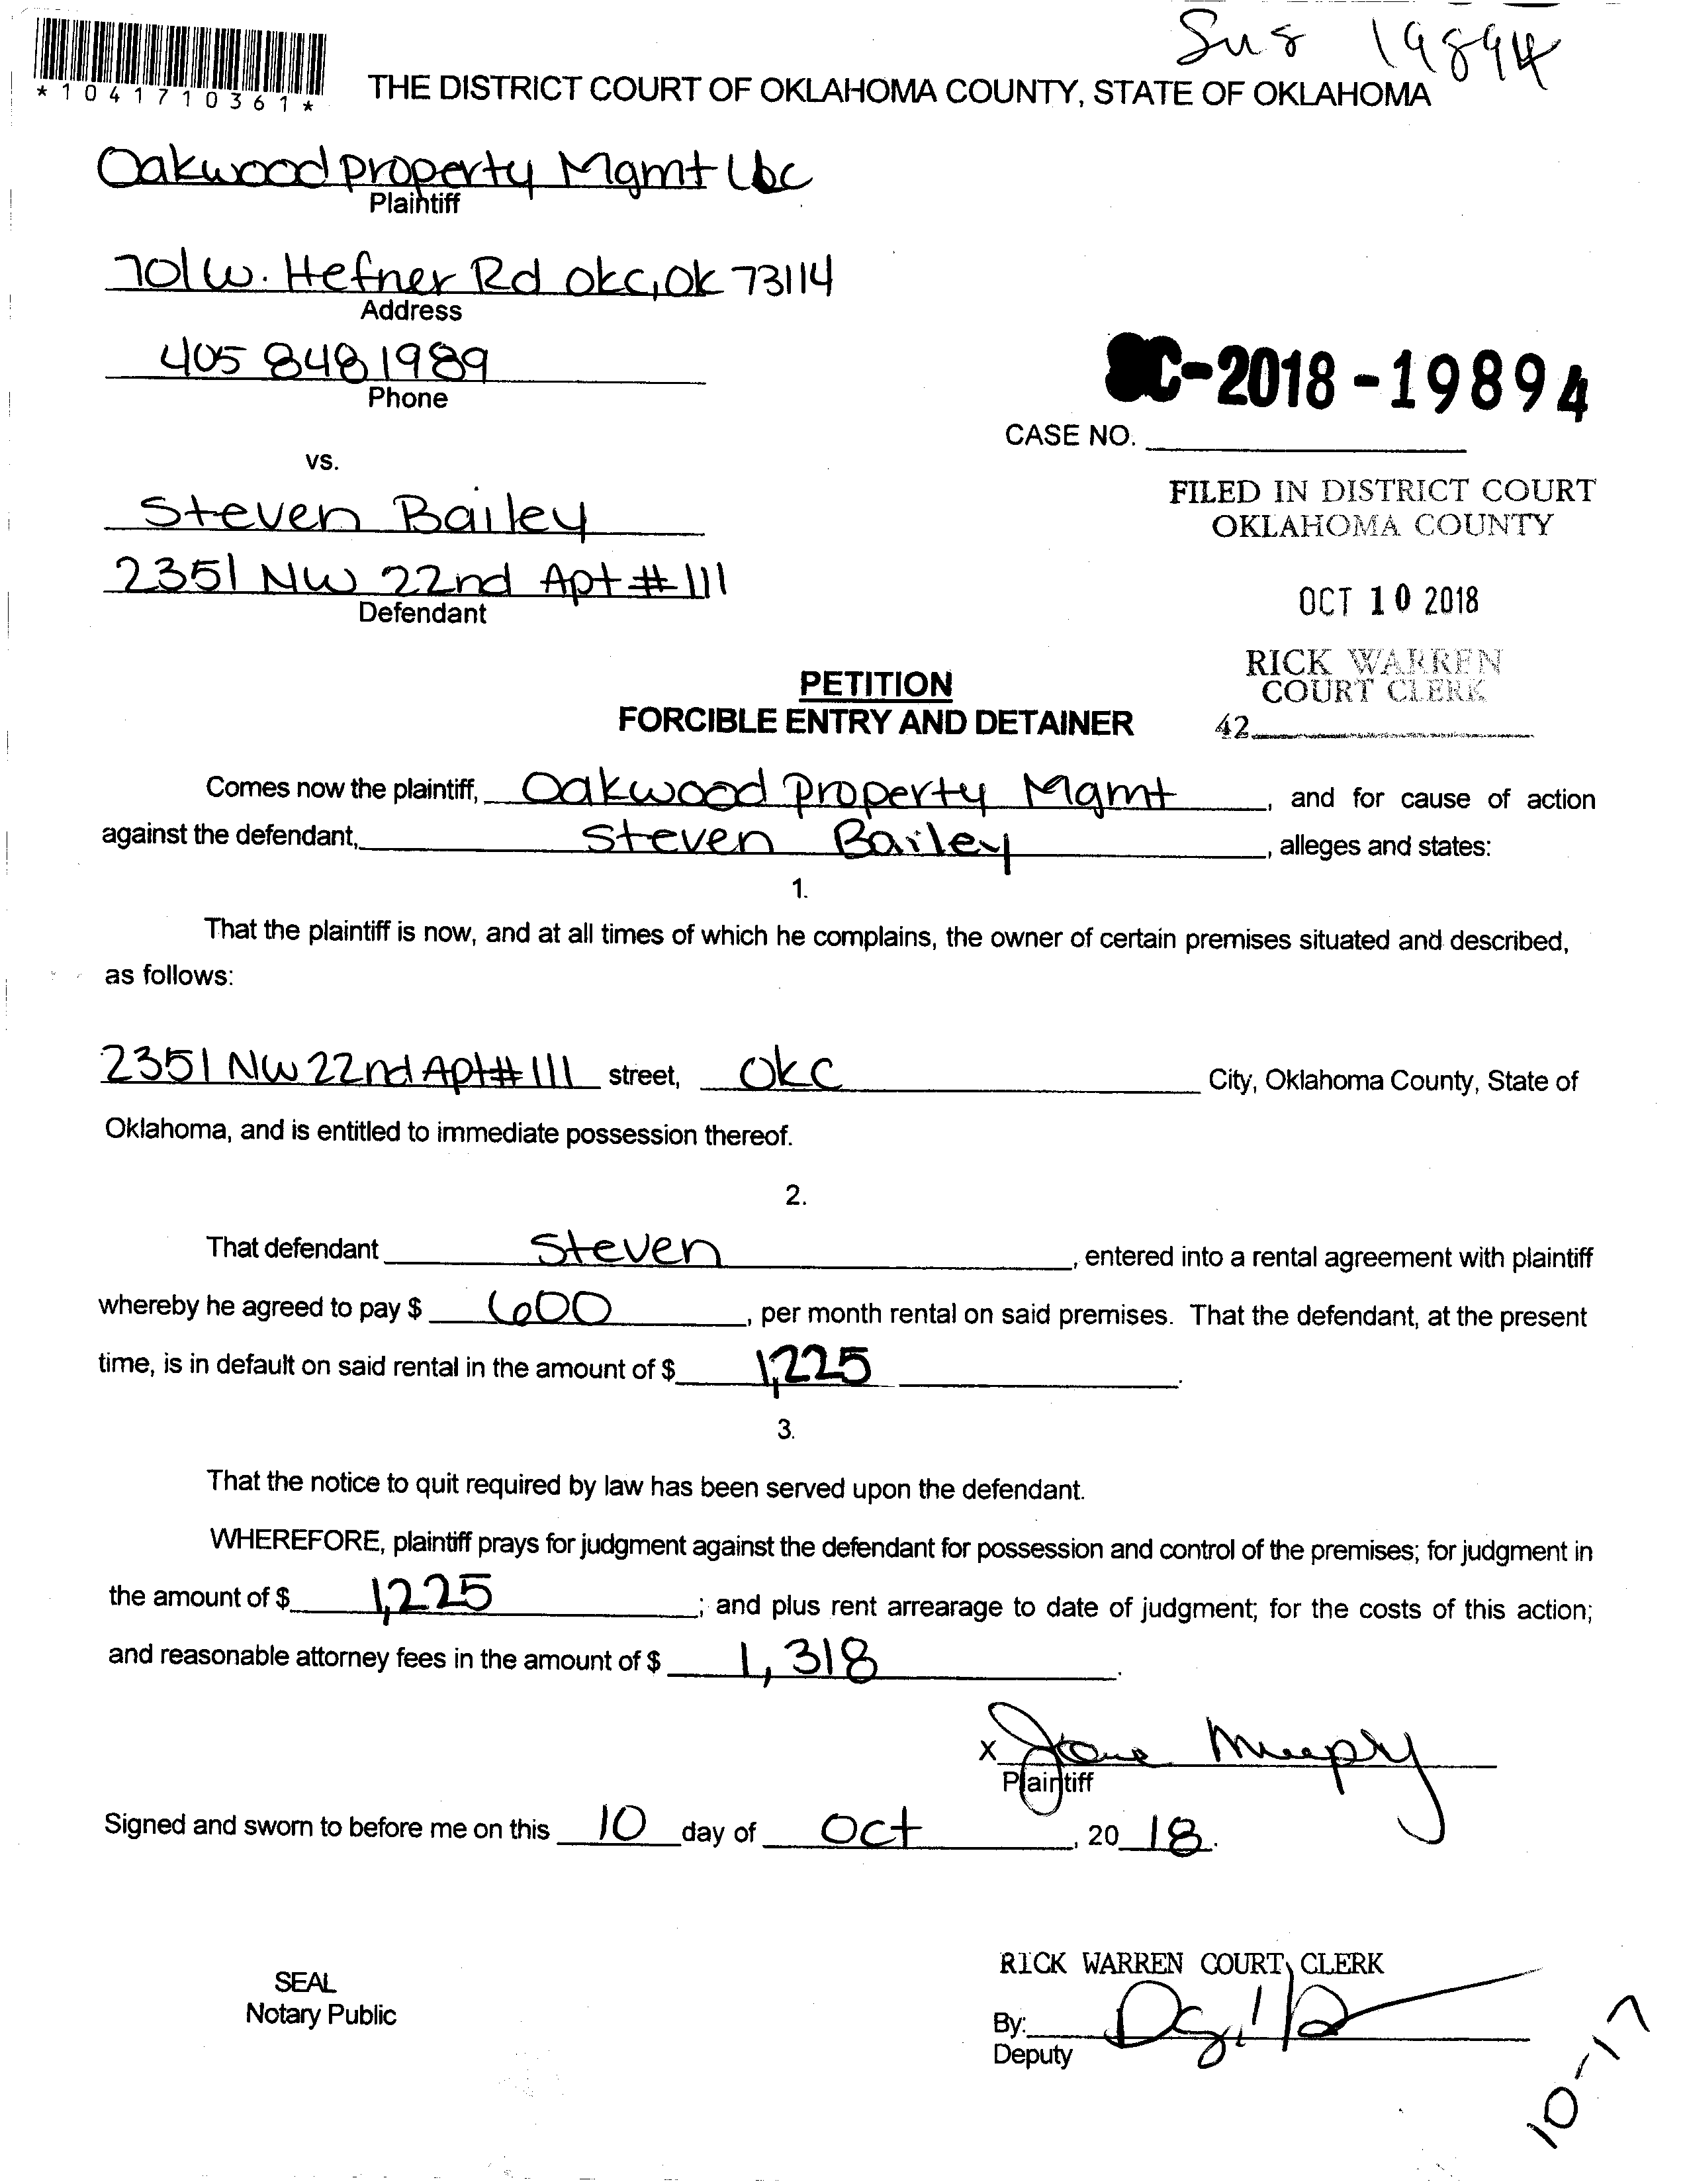 Sus 19894
*1041710361*
THE DISTRICT COURT OF OKLAHOMA COUNTY, STATE OF OKLAHOMA
Oakwood property Mgmt LLC
Plaintiff
701 W. Hefner Rd OKC, OK 73114
Address
405 848 1989
Phone
SC-2018-19894
CASE NO.
vs.
Steven Bailey
2351 NW 22nd Apt # 111
Defendant
FILED IN DISTRICT COURT
OKLAHOMA COUNTY
OCT 10 2018
RICK WARREN
COURT CLERK
42
PETITION
FORCIBLE ENTRY AND DETAINER
Comes now the plaintiff, Oakwood property Mgmt, and for cause of action
against the defendant, Steven Bailey, alleges and states:
1.
That the plaintiff is now, and at all times of which he complains, the owner of certain premises situated and described,
as follows:
2351 NW 22nd Apt# 111 street, OKC City, Oklahoma County, State of
Oklahoma, and is entitled to immediate possession thereof.
2.
That defendant Steven, entered into a rental agreement with plaintiff
whereby he agreed to pay $ 600, per month rental on said premises. That the defendant, at the present
time, is in default on said rental in the amount of $ 1,225.
3.
That the notice to quit required by law has been served upon the defendant.
WHEREFORE, plaintiff prays for judgment against the defendant for possession and control of the premises; for judgment in
the amount of $ 1,225; and plus rent arrearage to date of judgment; for the costs of this action;
and reasonable attorney fees in the amount of $ 1,318.
X
Plaintiff
Signed and sworn to before me on this 10 day of Oct, 20 18.
SEAL
Notary Public
RICK WARREN COURT CLERK
By:
Deputy
10-17